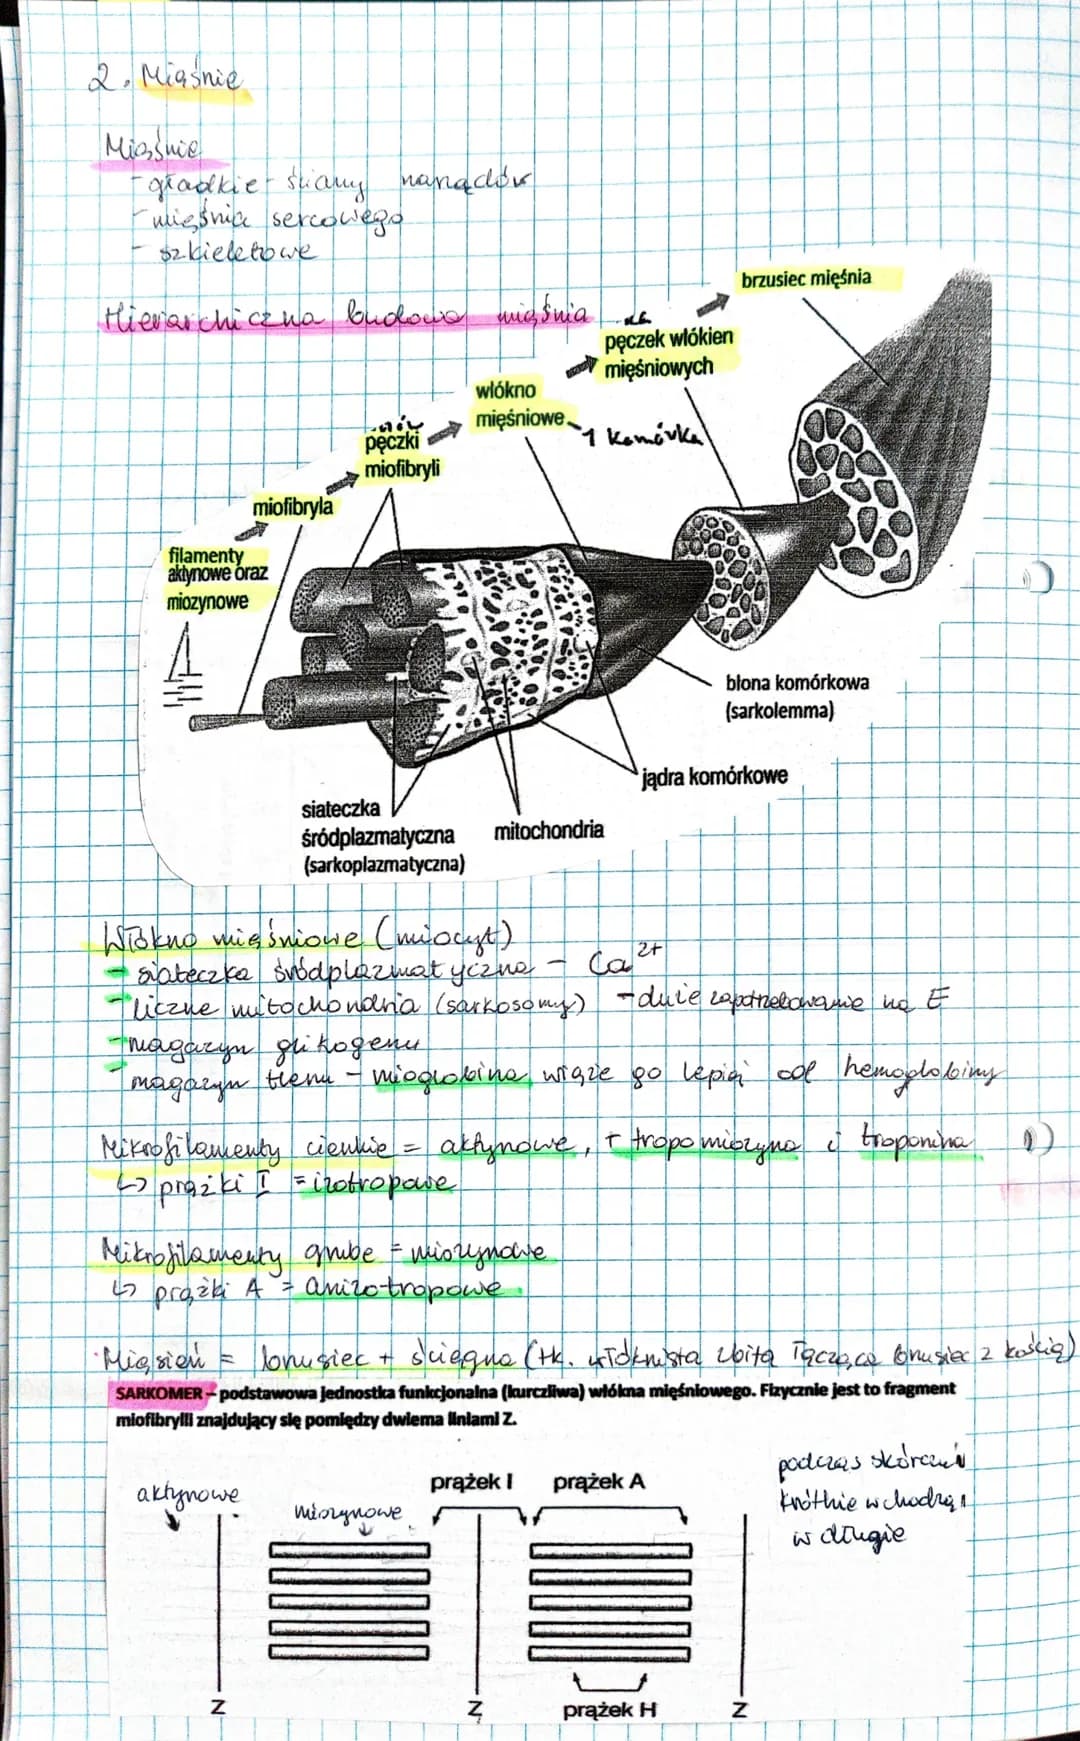 2. Mięśnie
Mięśnie
- gładkie - ściany narządów
- mięśnia sercowego
- szkieletowe
Hierarchiczna budowa mięśnia
brzusiec mięśnia
pęczek włókien
mięśniowych
włókno
mięśniowe
1 komórka
pęczki
miofibryli
miofibryla
filamenty
aktynowe oraz
miozynowe
błona komórkowa
(sarkolemma)
jądra komórkowe
siateczka
śródplazmatyczna
(sarkoplazmatyczna)
mitochondria
Włókno mięśniowe (miocyt)
- siateczka śródplazmatyczna - Ca2+
- liczne mitochondria (sarkosomy) - duże zapotrzebowanie na E
- magazyn glikogenu
- magazyn tlenu - mioglobina, wiąże go lepiej od hemoglobiny
Mikrofilamenty cienkie = aktynowe, + tropomiozyna i troponina
↳ prążki I = izotropowe
Mikrofilamenty grube = miozynowe
↳ prążki A = anizotropowe
Mięsień = brzusiec + ścięgna (tk. włóknista zbita łącząca brzusiec z kością)
SARKOMER – podstawowa jednostka funkcjonalna (kurczliwa) włókna mięśniowego. Fizycznie jest to fragment
miofibrylli znajdujący się pomiędzy dwiema liniami Z.
aktynowe
miozynowe
prążek I
prążek A
podczas skórczu
krótkie wchodzą
w długie
Z
Z
prążek H
Z